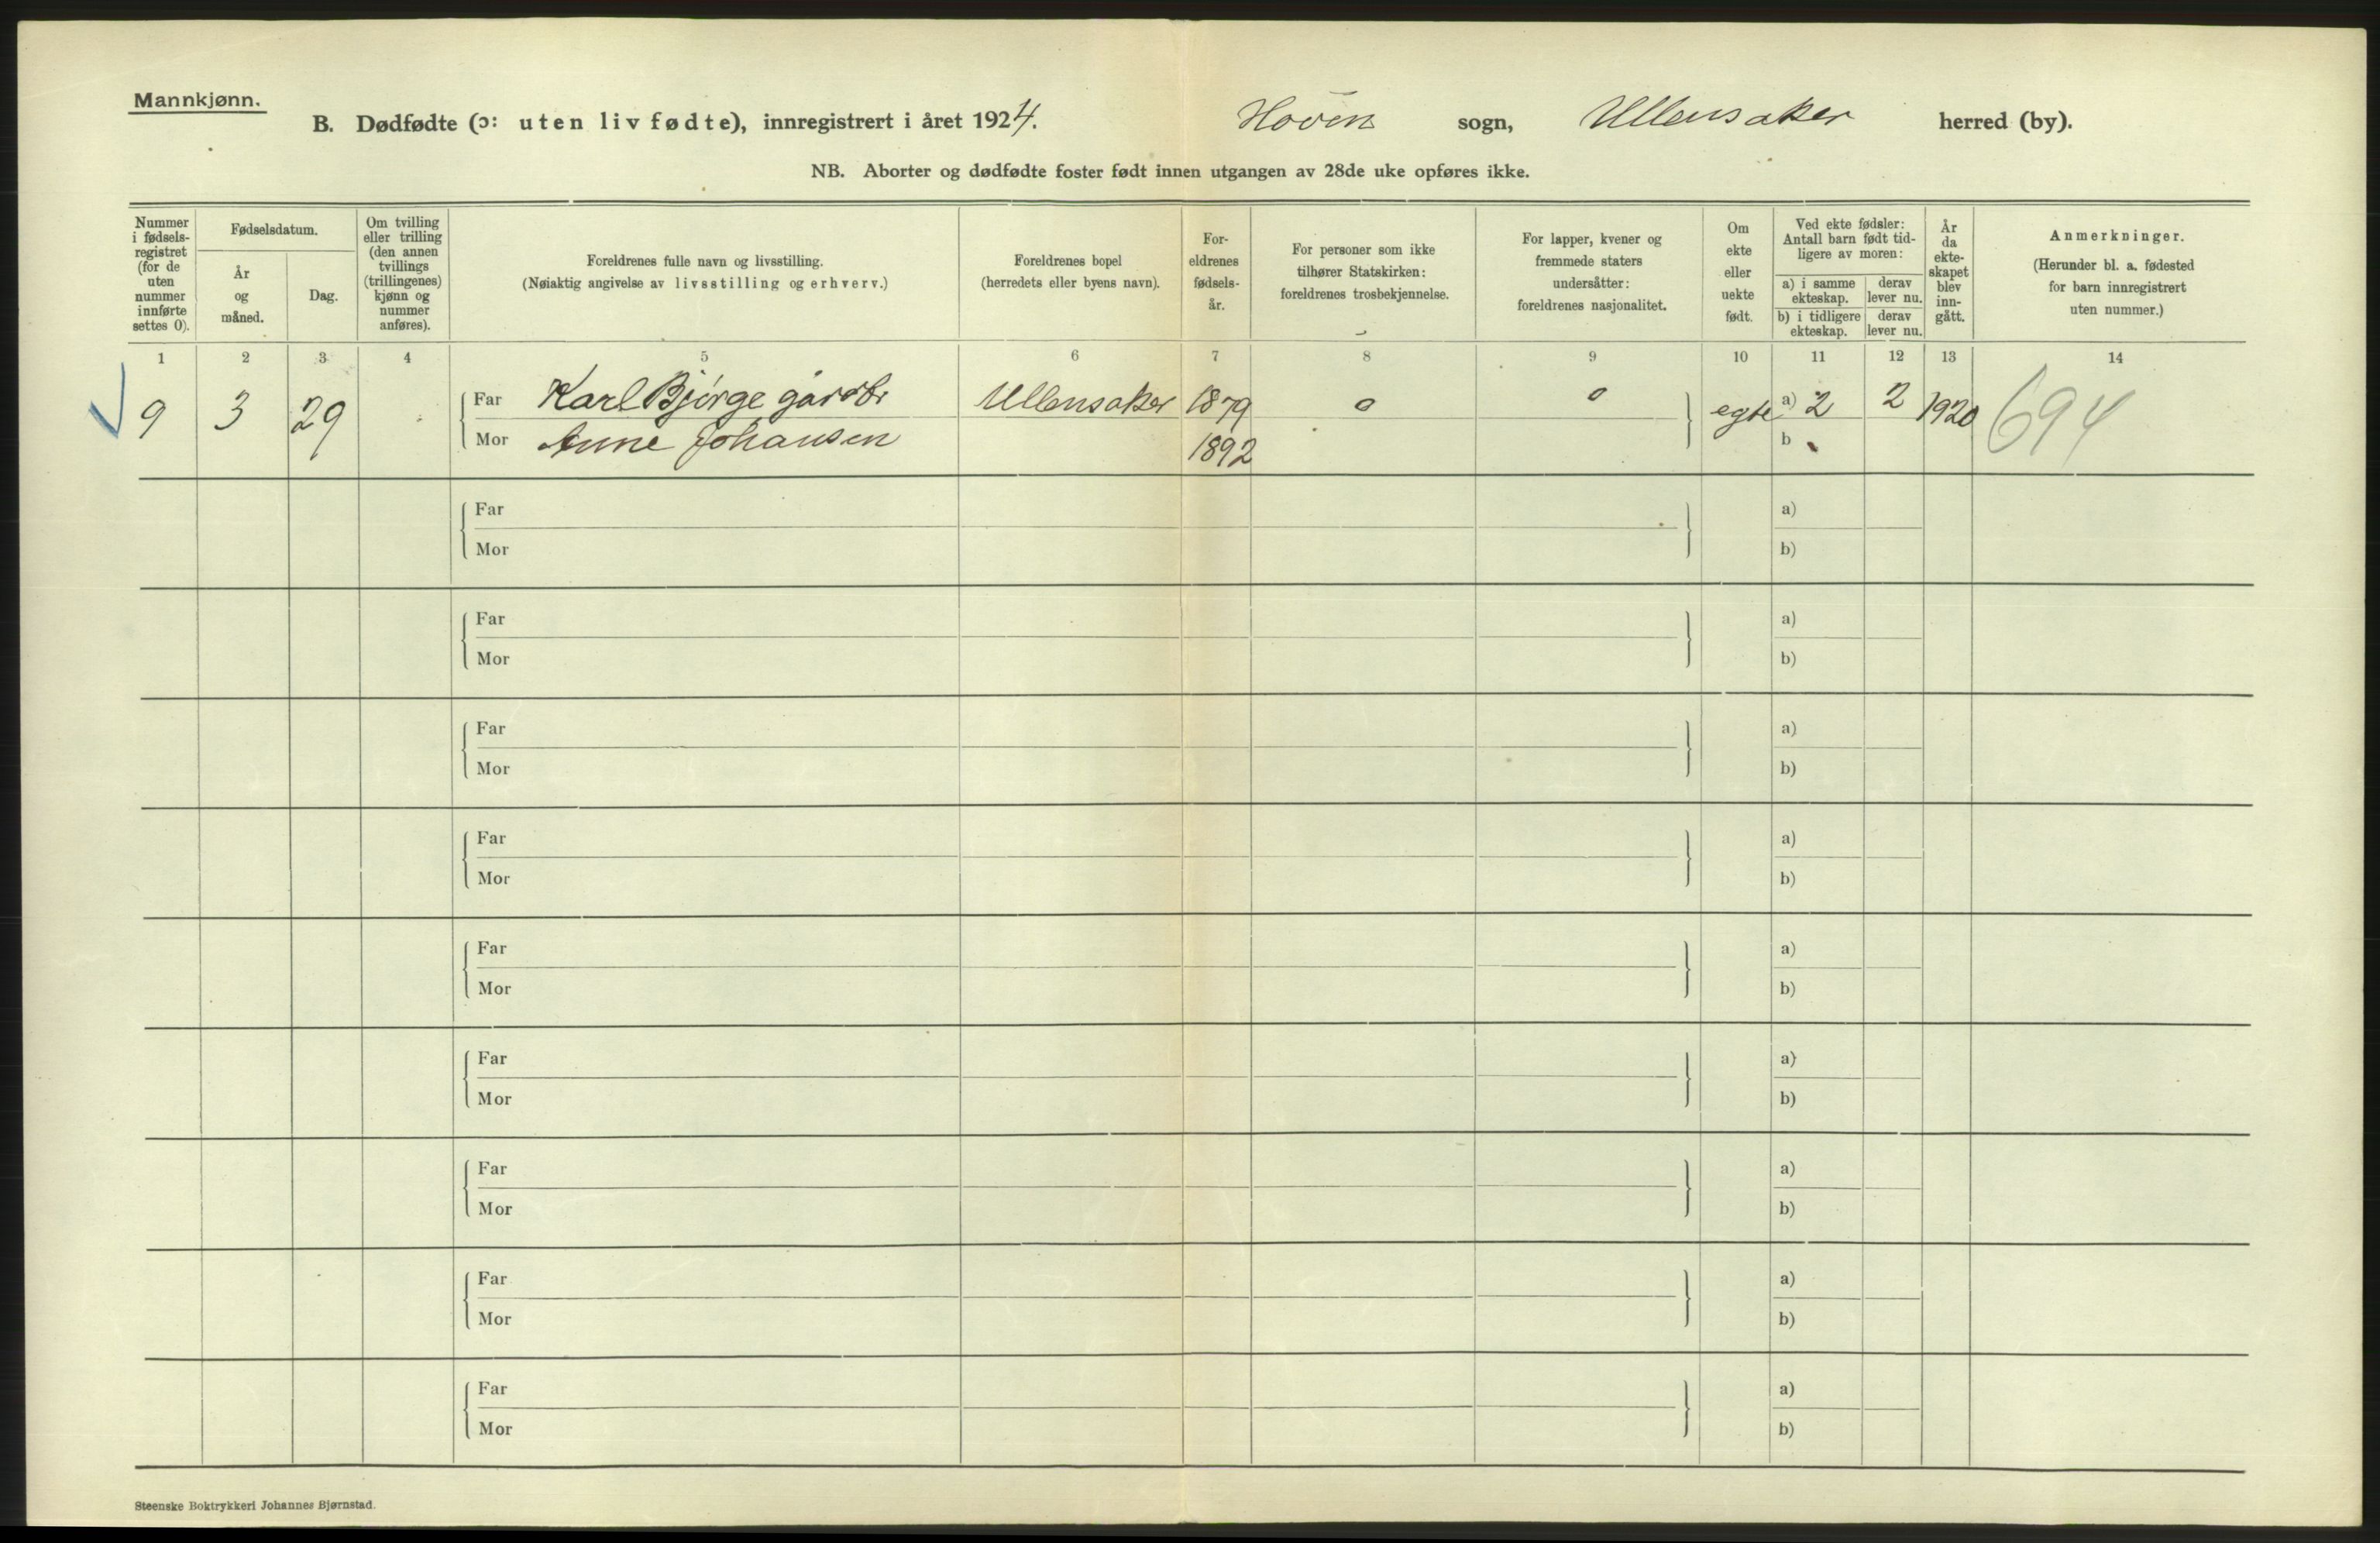 Mannkjønn.
B. Dødfødte (ɔ: uten liv fødte), innregistrert i året 1924. Hovin sogn, Ullensaker herred (by).
NB. Aborter og dødfødte foster født innen utgangen av 28de uke opføres ikke.
Nummer i fødsels-registret (for de uten nummer innførte settes 0).
Fødselsdatum.
År og måned.
Dag.
Om tvilling eller trilling (den annen tvillings (trillingenes) kjønn og nummer anføres).
Foreldrenes fulle navn og livsstilling.
(Nøiaktig angivelse av livsstilling og erhverv.)
Foreldrenes bopel
(herredets eller byens navn).
For-eldrenes fødsels-år.
For personer som ikke tilhører Statskirken: foreldrenes trosbekjennelse.
For lapper, kvener og fremmede staters undersåtter: foreldrenes nasjonalitet.
Om ekte eller uekte født.
Ved ekte fødsler: Antall barn født tid-ligere av moren:
a) i samme ekteskap.
derav lever nu.
b) i tidligere ekteskap.
derav lever nu.
År da ekte-skapet blev inn-gått.
Anmerkninger.
(Herunder bl. a. fødested for barn innregistrert uten nummer.)
1 2 3 4 5 6 7 8 9 10 11 12 13 14
9 3 29 Far Karl Bjørge gårdbr Ullensaker 1879 0 0 egte a) 2 2 1920 694
Mor Anne Johansen 1892 b
Far a)
Mor b)
Far a)
Mor b)
Far a)
Mor b)
Far a)
Mor b)
Far a)
Mor b)
Far a)
Mor b)
Far a)
Mor b)
Far a)
Mor b)
Far a)
Mor b)
Steenske Boktrykkeri Johannes Bjørnstad.